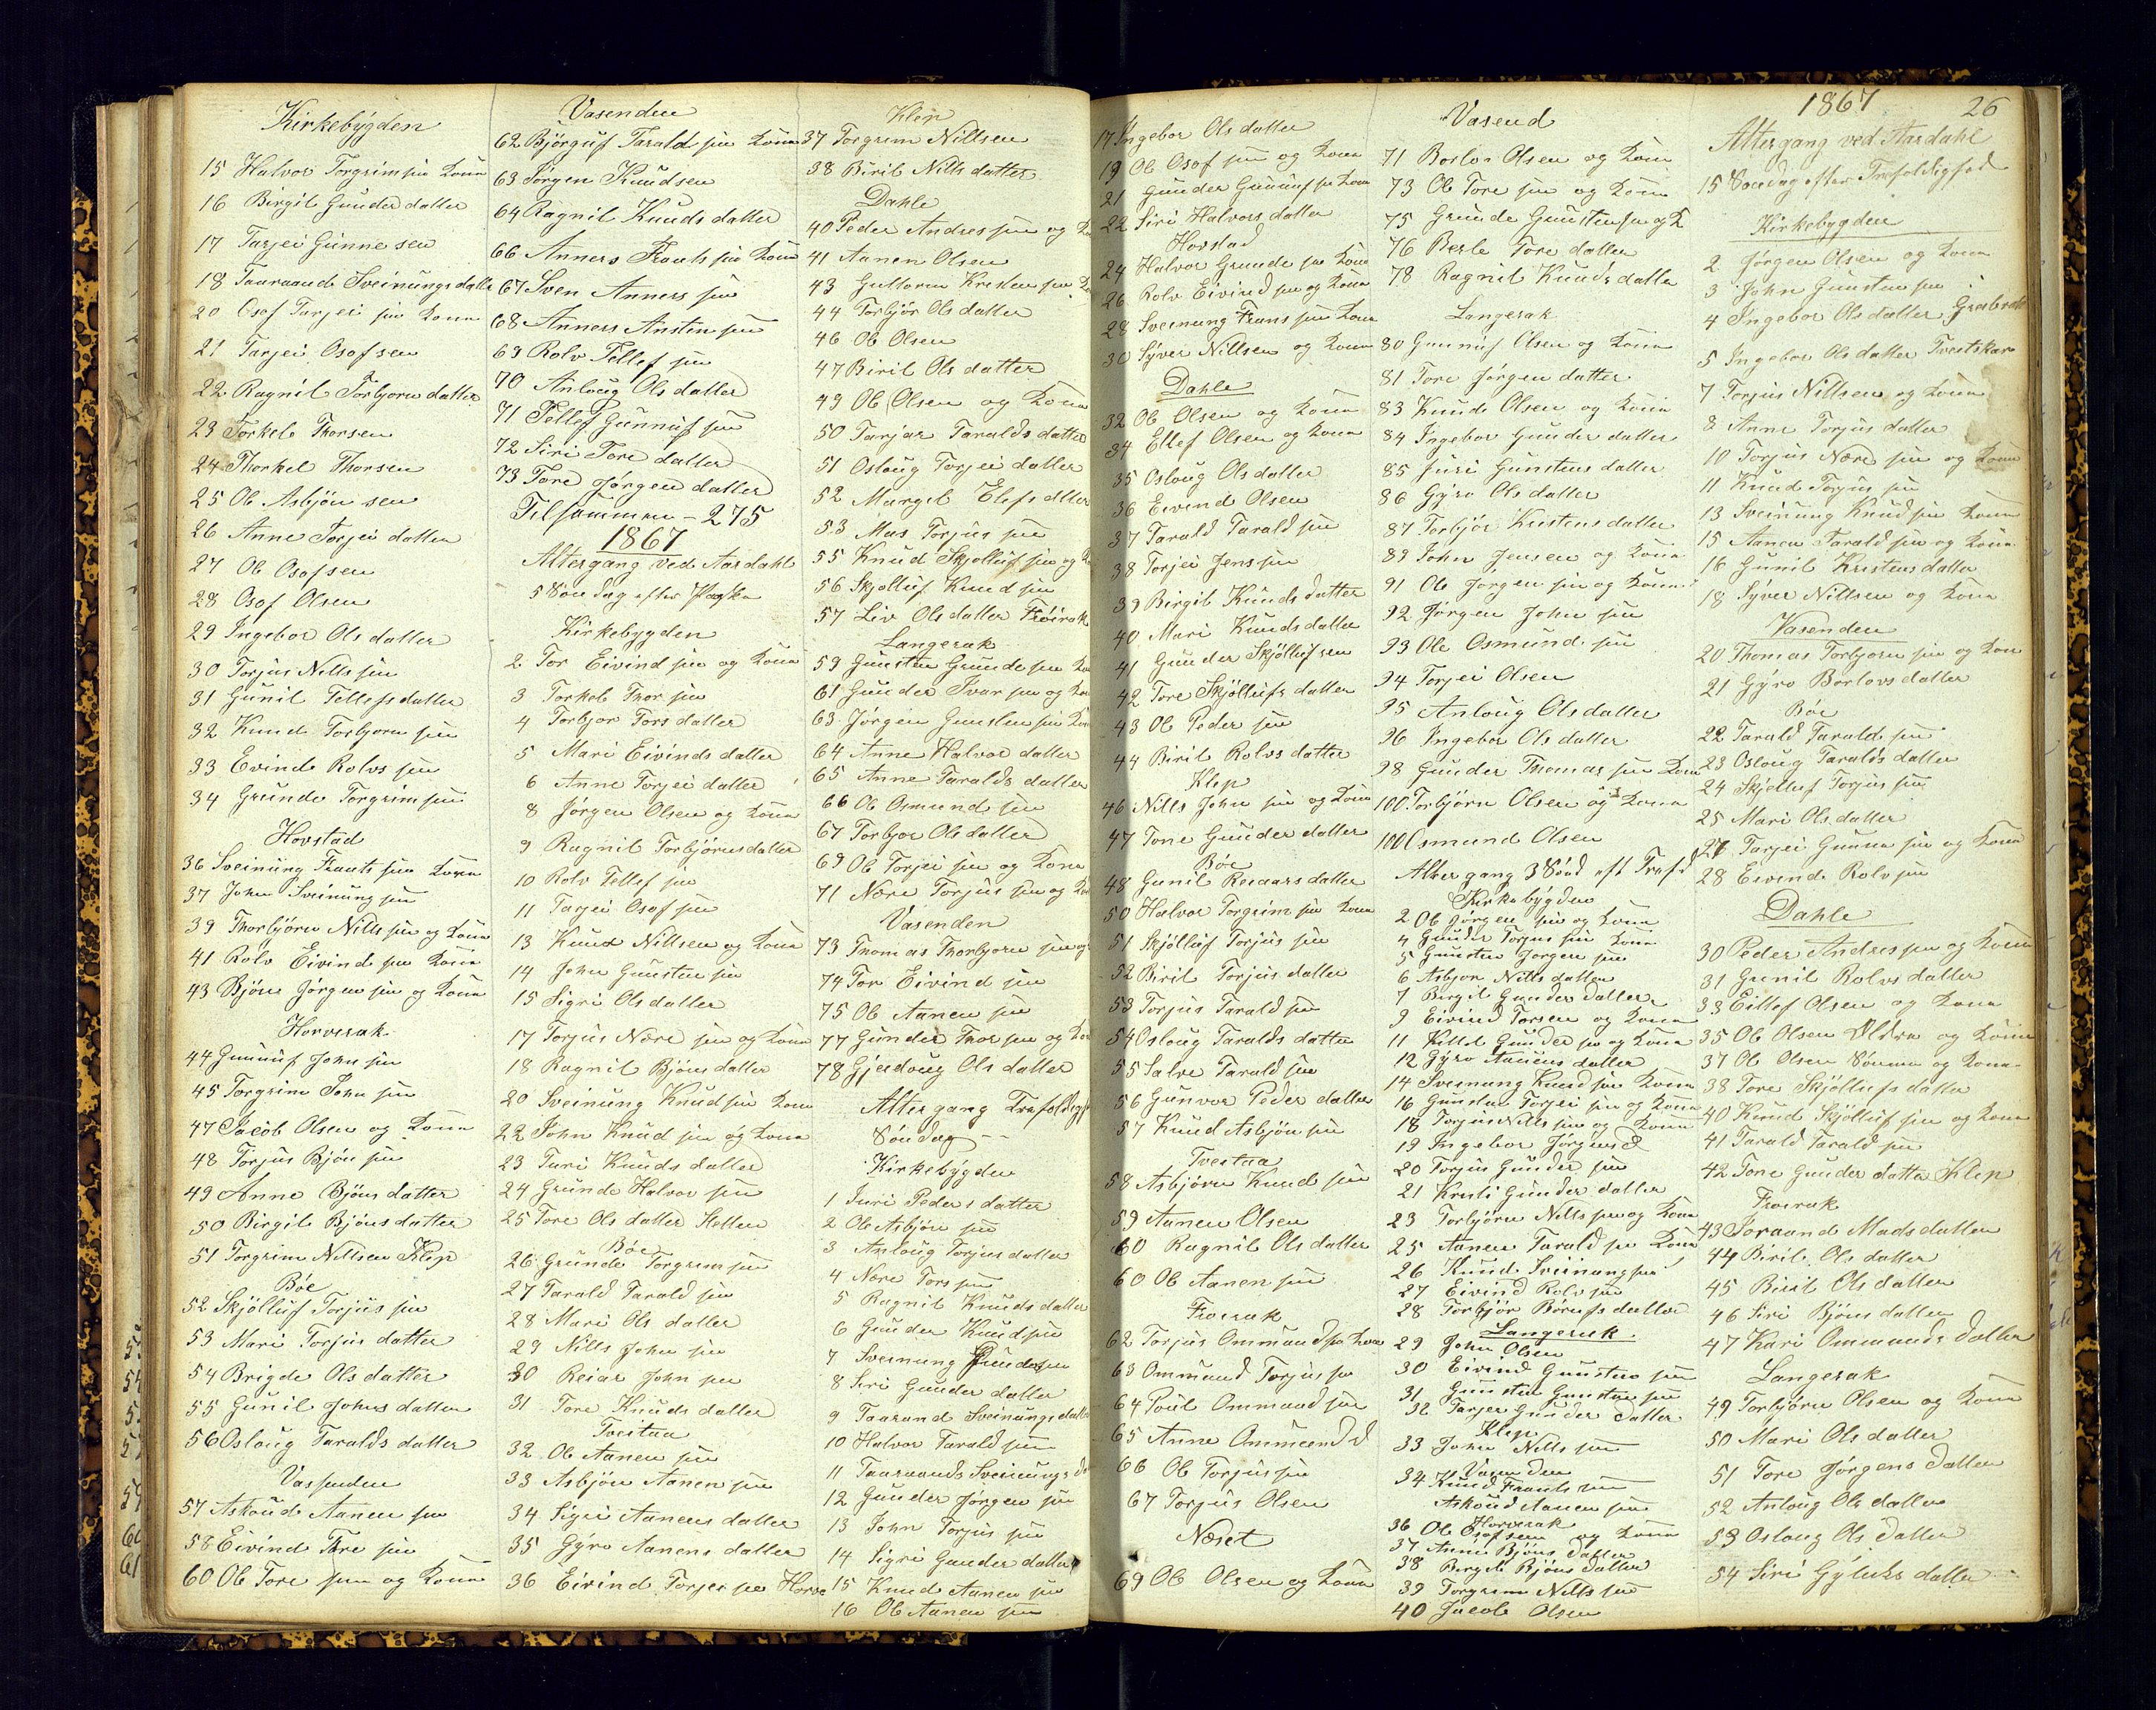 Kirkebygden
15 Halvor Torgrim sen Kone
16 Birgit Gunder datter
17 Tarjei Gunne sen
18 Taaraand Sveinungs datter
20 Osof Tarjei sen Kone
21 Tarjei Osof sen
22 Ragnil Torbjorn datter
23 Torkel Thorsen
24 Thorkel Thorsen
25 Ob Asbjön sen
26 Anne Torjei datter
27 Ob Osofsen
28 Osof Olsen
29 Ingebor Ols datter
30 Torjus Nills sen
31 Gunil Tellefs datter
32 Knud Torbjorn sen
33 Evind Rolvs sen
34 Grunde Torgrim sen
Hovstad
36 Sveinung Frants sen Kone
37 John Sveinung sen
39 Thorbjörn Nills sen og Kone
41 Rolv Eivind sen Kone
43 Bjön Jörgen sen og Kone
Horverak
44 Gunnuf John sen
45 Torgrim John sen
47 Jacob Olsen og Kone
48 Torjus Bjön sen
49 Anne Bjöns datter
50 Birgit Bjöns datter
51 Torgrim Nillsen Klep
Böe
52 Skjölluf Torjus sen
53 Mari Torjus datter
54 Brigde Ols datter
55 Gunil Johns datter
56 Osloug Taralds datter
Vassenden
57 Askoud Aanen sen
58 Eivind Tore sen
60 Ob Tore sen og Kone
Vasenden
62 Björguf Tarald sen Kone
63 Jörgen Knudsen
64 Ragnil Knuds datter
66 Anners Frants sen Kone
67 Sven Anners sen
68 Anners Austen sen
69 Rolv Tellef sen
70 Anloug Ols datter
71 Tellef Gunnuf sen
72 Siri Tore datter
73 Tore Jorgen datter
Tilsammen - 275
1867
Altergang ved Aardahl
5 Söndag efter Paaske
Kirkebygden
2 Tor Eivind sen og Kone
3 Torkel Thor sen
4 Torbjor Tors datter
5 Mari Eivinds datter
6 Anne Torjei datter
8 Jörgen Olsen og Kone
9 Ragnil Torbjörns datter
10 Rolv Tellef sen
11 Tarjei Osof sen
13 Knud Nillsen og Kone
14 John Gunsten sen
15 Sigri Ols datter
17 Torjus Nære sen og Kone
18 Ragnil Bjöns datter
20 Sveinung Knud sen Kone
22 John Knud sen og Kone
23 Turi Knuds datter
24 Grunde Halvor sen
25 Tore Ols datter Stellen
Böe
26 Grunde Torgrim sen
27 Tarald Tarald sen
28 Mari Ols datter
29 Nills John sen
30 Reiar John sen
31 Tore Knuds datter
Tveitaa
32 Ob Aanen sen
33 Asbjön Aanen sen
34 Sigri Aanens datter
35 Gyro Aanens datter
36 Eivind Torjei sen Horve
Klep
37 Torgrim Nillsen
38 Biril Nills datter
Dahle
40 Peder Andres sen og Ko
41 Aanen Olsen
43 Guttorm Kresten sen
44 Torbjör Ols datter
46 Ob Olsen
47 Biril Ols datter
49 Ob Olsen og Kone
50 Tarjar Taralds datter
51 Osloug Torjei datter
52 Margit Elefs dtter
53 Mas Torjus sen
55 Knud Skjolluf sen og K
56 Skjolluf Knud sen
57 Liv Ols datter Fröirak
Langerak
59 Gunsten Grunde sen Ko
61 Gunder Ivar sen og Ko
63 Jörgen Gunsten sen Kon
64 Anne Halvor datter
65 Anne Taralds datter
66 Ob Osmund sen
67 Torbjor Ols datter
69 Ob Torjei sen og Kone
71 Nære Torjus sen og Ko
Vasenden
73 Thomas Thorbjorn sen og
74 Tor Eivind sen
75 Ob Aanen sen
77 Gunder Thor sen og Ko
78 Gjerdoug Ols datter
Altergang Trefoldigh
Söndag
Kirkebygden
1 Juri Peders datter
2 Ob Asbjön sen
3 Anloug Torjus datter
4 Nære Tors sen
5 Ragnil Knuds datter
6 Gunder Knud sen
7 Sveinung Gunder sen
8 Siri Gunder datter
9 Taarand Sveinungs datter
10 Halvor Tarald sen
11 Taaraands Sveinungs d
12 Gunder Jörgen sen
13 John Torjus sen
14 Sigri Gunder datter
15 Knud Aanen sen
16 Ob Aanen sen
17 Ingebor Ols datter
19 Ob Osof sen og Kone
21 Gunder Gunnuf sen Kone
22 Siri Halvors datter
Hovstad
24 Halvor Grunde sen Kone
26 Rolv Eivind sen og Kone
28 Sveinung Frans sen Kone
30 Syver Nillsen og Kone
Dahle
32 Ob Olsen og Kone
34 Ellef Olsen og Kone
35 Osloug Ols datter
36 Eivend Olsen
37 Tarald Tarald sen
38 Torjei Jens sen
39 Birgit Knuds datter
40 Mari Knuds datter
41 Gunder Skjöllufsen
42 Tore Skjöllufs datter
43 Ob Peder sen
44 Biril Rolvs datter
Klep
46 Nills John sen og Kone
47 Tone Gunder datter
Böe
48 Gunil Reiaars datter
50 Halvor Torgrim sen Kone
51 Skjölluf Torjus sen
52 Biril Torjus datter
53 Torjus Tarald sen
54 Osloug Taralds datter
55 Salve Tarald sen
56 Gunvor Peder datter
57 Knud Asbjön sen
Tveitaa
58 Asbjörn Knud sen
59 Aanen Olsen
60 Ragnil Ols datter
60 Ob Aanen sen
Froirak
62 Torjus Ommund sen Kone
63 Ommund Torjus sen
64 Poul Ommund sen
65 Anne Ommund d
66 Ob Torjus sen
67 Torjus Olsen
Næset
69 Ob Olsen og Kone
Vasend
71 Boslov Olsen og Kone
73 Ob Tore sen og Kone
75 Grunde Gunsten sen og K
76 Berle Tore datter
78 Ragnil Knuds datter
Langerak
80 Gunnuf Olsen og Kone
81 Tore Jörgen datter
83 Knud Olsen og Kone
84 Ingebor Gunder datter
85 Juri Gunstens datter
86 Gyro Ols datter
87 Torbjör Kristens datter
89 John Jensen og Kone
91 Ob Jorgen sen og Kone
92 Jörgen John sen
93 Ole Osmund sen
94 Torjei Olsen
95 Anloug Ols datter
96 Ingebor Ols datter
98 Gunder Thomas sen Kone
100 Torbjörn Olsen og Kone
100 Osmund Olsen
Altergang 3 Sönd eft Tref d
Kirkebygden
2 Ob Jörgen sen og Kone
4 Gunder Torjus sen Kone
5 Gunsten Jorgen sen
6 Asbjor Nills datter
7 Birgit Gunder datter
9 Eivind Torsen og Kone
11 Killed Gunder sen og Kone
12 Gyro Aanens datter
14 Sveinung Knud sen Kone
16 Gunder Torjei sen og Kone
18 Torjus Nills sen og Kone
19 Ingebor Jörgens d
20 Torjus Gunder sen
21 Kristi Gunder datter
23 Torbjörn Nills sen og Kone
25 Aanen Tarald sen Kone
26 Knud Sveinung sen
27 Eivind Rolv sen
28 Torbjör Börufs datter
Langerak
29 John Olsen
30 Eivind Gunsten sen
31 Gunsten Gunsten sen
32 Tarjer Gunder datter
Klep
33 John Nills sen
Vasenden
34 Knud Frants sen
Askoud Aanen sen
Horverak
36 Ob Osofsen og Kone
37 Anne Bjöns datter
38 Birgit Bjöns datter
39 Torgrim Nills sen
40 Jacob Olsen
1867 26
Altergang ved Aardahl
15 Söndag efter Trefoldighed
Kirkebygden
2 Jörgen Olsen og Kone
3 John Gunsten sen
4 Ingebor Ols datter
5 Ingebor Ols datter
7 Torjus Nillsen og Kone
8 Anne Torjus datter
10 Torjus Nære sen og Kone
11 Knud Torjus sen
13 Sveinung Knud sen Kone
15 Aanen Tarald sen og Kone
16 Gunil Kristens datter
18 Syver Nillsen og Kone
Vasenden
20 Thomas Torbjorn sen og Kone
21 Gyro Borlovs datter
Böe
22 Tarald Tarald sen
23 Osloug Taralds datter
24 Skjelluf Torjus sen
25 Mari Ols datter
27 Tarjei Gunne sen og Kone
28 Eivind Rolv sen
Dahle
30 Peder Andres sen og Kone
31 Gunil Rolvs datter
33 Eillef Olsen og Kone
35 Ob Olsen Oldre og Kone
37 Ob Olsen og Kone
38 Tore Skjöllufs datter
40 Knud Skjölluf sen og Kone
41 Tarald Tarald sen
42 Tone Gunder datter Klep
Froirak
43 Toraand Mads datter
44 Biril Ols datter
45 Biril Ols datter
46 Siri Bjöns datter
47 Kari Ommunds datter
Langerak
49 Torbjörn Olsen og Kone
50 Mari Ols datter
51 Tore Jörgens datter
52 Anloug Ols datter
53 Osloug Ols datter
54 Siri Gyluks datter